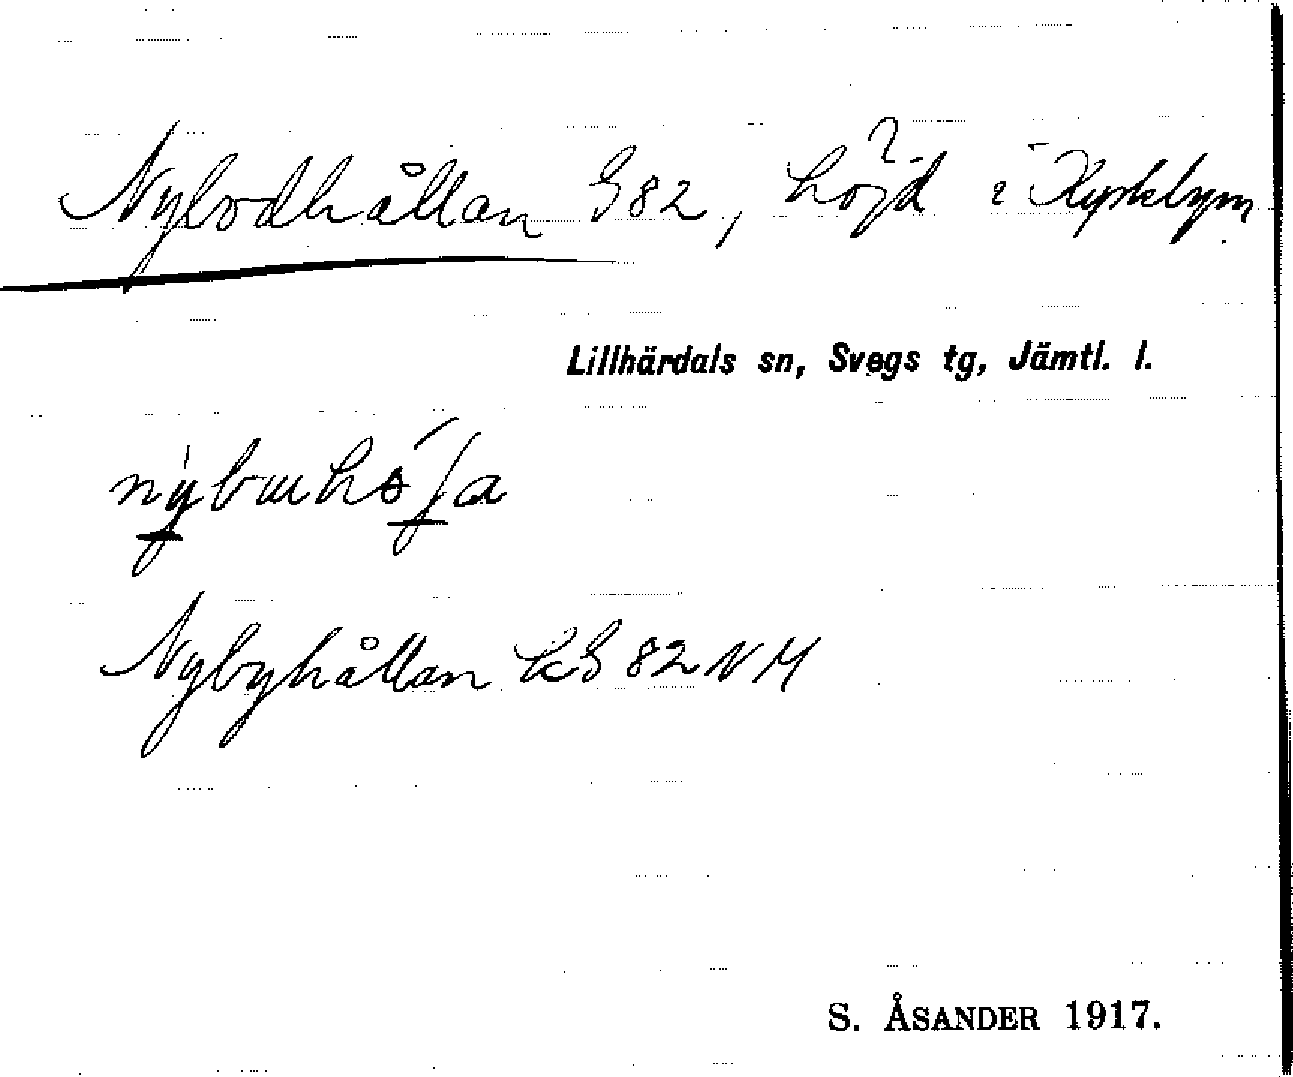 Nybodhållan G82, höjd? i Kyrkbyn.
Lillhärdals sn, Svegs tg, Jämtl. l.
Nybyhållan kG 82 NM
S. ÅSANDER 1917.